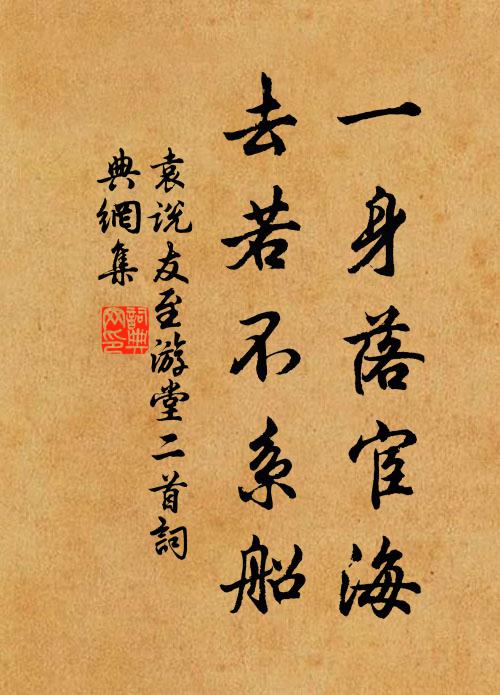 一身落宦海
去若不系船
袁说友至游堂二首詞
典網集
詞典网印